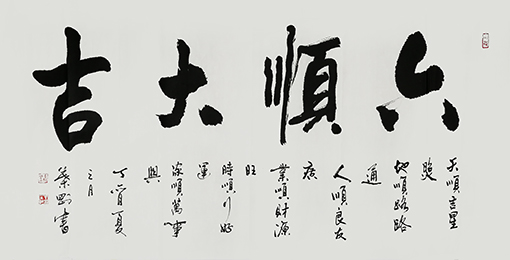 六順大吉
天順吉星
照
地順路路
通
人順良友
廣
業順財源
旺
時順行好
運
家順萬事
興
丁酉夏
月
書